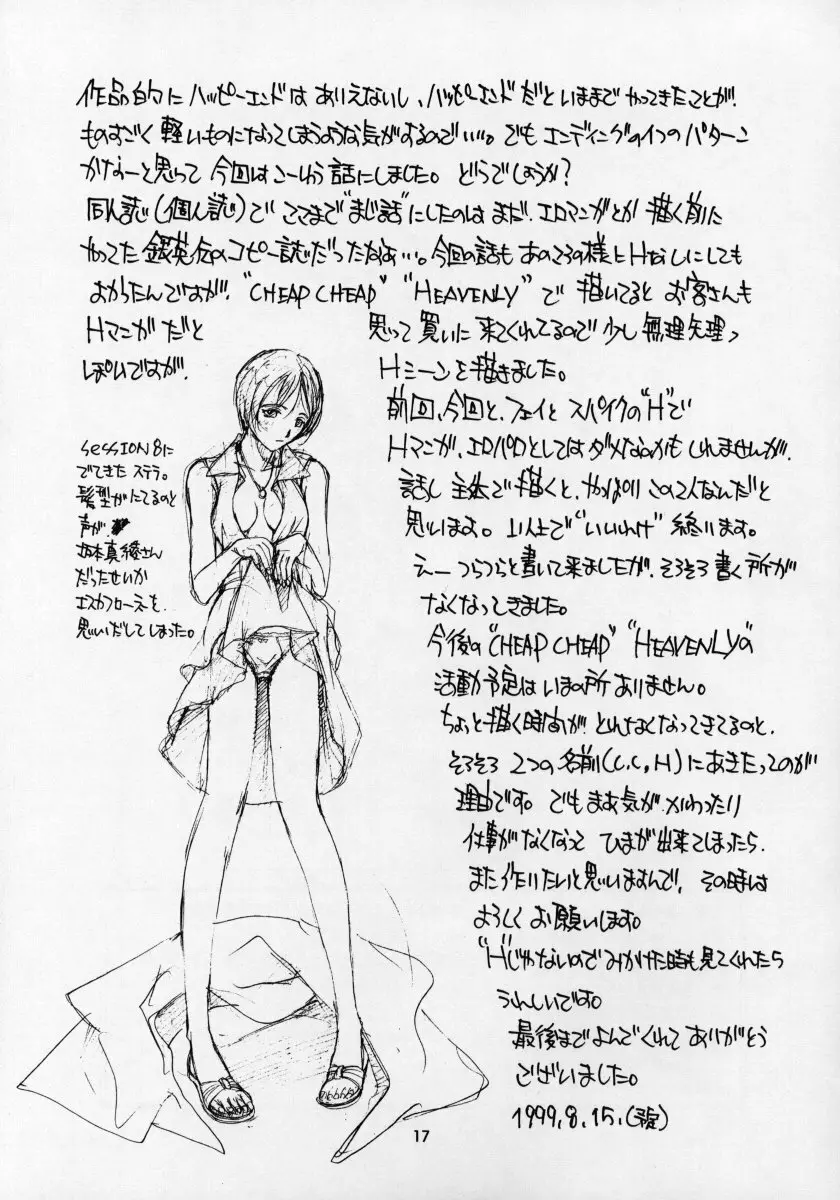 作品的にハッピーエンドはありえないし、ハッピーエンドだといままでやってきたことが、
ものすごく軽いものになってしまうような気がするので…。でもエンディングの1つのパターン
かなーと思って今回はこーいう話にしました。どうでしょうか？
同人誌(個人誌)でここまで“まじ話”にしたのはまだ、エロマンガとか描く前に
やってた銀英伝のコピー誌だったなぁ…。今回の話もあのころの様にHなしにしても
よかったんですが、“CHEAP CHEAP” “HEAVENLY”で描いてるとお客さんも
Hマンガだと思って買いに来てくれてるので少し無理矢理っ
ぽいですが、Hシーンを描きました。
前回、今回と、フェイとスパイクの“H”で
Hマンガ、エロパロとしてはダメなのかもしれませんが、
話し主体で描くと、やっぱりこの2人なんだと
思います。以上で“いいわけ”終ります。
えーつらつらと書いて来ましたが、そろそろ書く所が
なくなってきました。
今後の“CHEAP CHEAP” “HEAVENLY”の
活動予定はいまの所ありません。
ちょっと描く時間が、とれなくなってきてるのと、
そろそろ2つの名前(C.C,H)にあきたってのが
理由です。でもまあ気が、かわったり
仕事がなくなって ひまが出来てしまったら、
また作りたいと思いますんで、その時は
よろしくお願いします。
“H”じゃないのでみかけた時も見てくれたら
うれしいです。
最後までよんでくれてありがとう
ございました。
1999.8.15.
SESSION8に
でてきたステラ。
髪型がにてるのと
声が、
坂本真綾さん
だったせいか
エスカフローネを
思いだしてしまった。
17